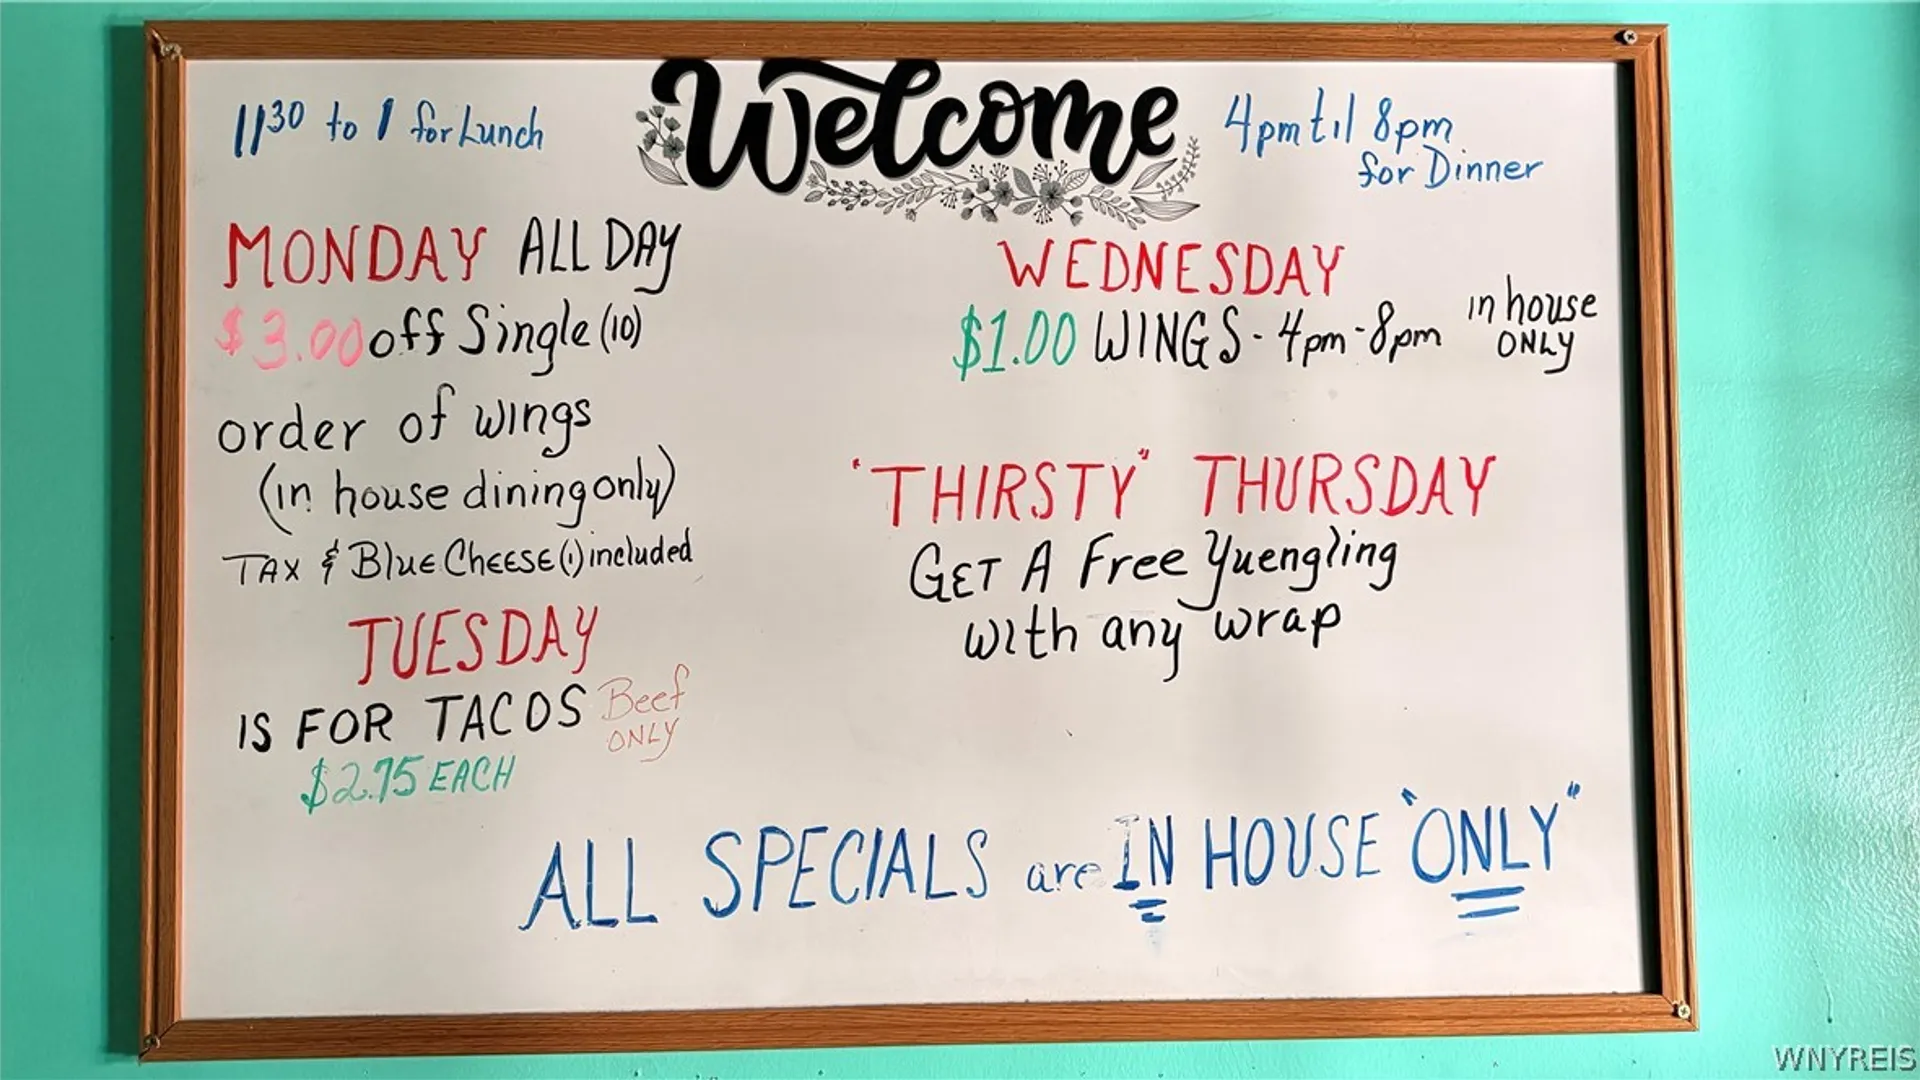 Welcome
11³⁰ to 1 for Lunch
4pm til 8pm
for Dinner
MONDAY ALL DAY
$3.00 off Single (10)
order of wings
(in house dining only)
TAX & BLUE CHEESE (1) included
TUESDAY
IS FOR TACOS Beef
ONLY
$2.75 EACH
WEDNESDAY
$1.00 WINGS - 4pm - 8pm in house
ONLY
"THIRSTY" THURSDAY
GET A Free Yuengling
with any wrap
ALL SPECIALS are IN HOUSE "ONLY"
WNYREIS